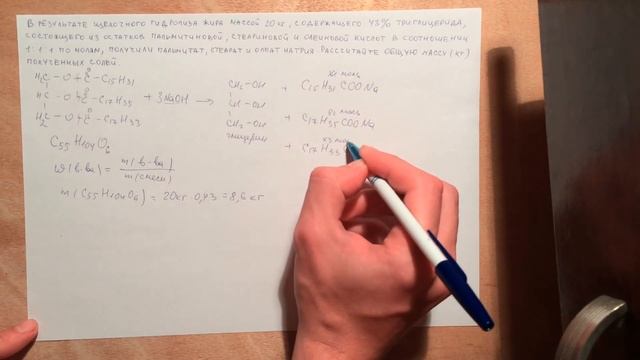 В РЕЗУЛЬТАТЕ ЩЕЛОЧНОГО ГИДРОЛИЗА ЖИРА МАССОЙ 20 КГ, СОДЕРЖАЩЕГО 43% ТРИГЛИЦЕРИДА,
СОСТОЯЩЕГО ИЗ ОСТАТКОВ ПАЛЬМИТИНОВОЙ, СТЕАРИНОВОЙ И ОЛЕИНОВОЙ КИСЛОТ В СООТНОШЕНИИ
1:1:1 ПО МОЛЯМ, ПОЛУЧИЛИ ПАЛЬМИТАТ, СТЕАРАТ И ОЛЕАТ НАТРИЯ. РАССЧИТАЙТЕ ОБЩУЮ МАССУ (КГ)
ПОЛУЧЕННЫХ СОЛЕЙ.
X1 моль
H2C – O + C – C15H31 CH2 – OH + C15H31 COONa
HC – O + C – C17H35 + 3NaOH → CH – OH X2 моль
H2C – O + C – C17H33 CH2 – OH + C17H35 COONa
глицерин X3 моль
C55H104O6 + C17H33
ω(в-ва) = m(в-ва) / m(смеси)
m(C55H104O6) = 20кг · 0,43 = 8,6 кг